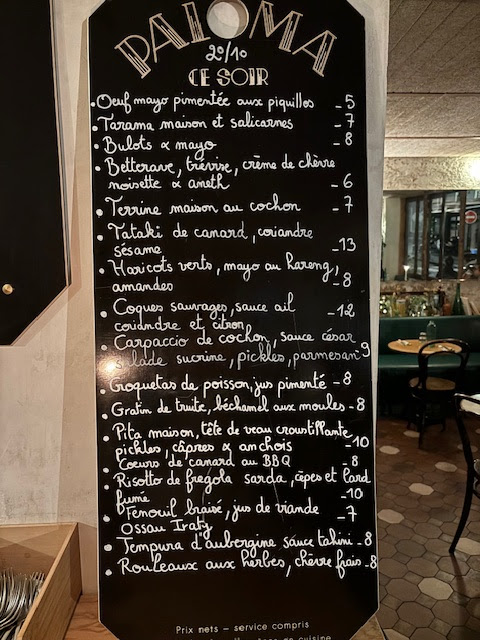 PALOMA
20/10
CE SOIR
• Oeuf mayo pimentée aux piquillos -5
• Tarama maison et salicarnes -7
• Bulots & mayo -8
• Betterave, trévise, crème de chèvre
noisette & aneth -6
• Terrine maison au cochon -7
• Tataki de canard, coriandre
sésame -13
• Haricots verts, mayo au hareng,
amandes -8
• Coques sauvages, sauce ail -12
coriandre et citron
• Carpaccio de cochon, sauce césar
salade sucrine, pickles, parmesan 9
• Croquetas de poisson, jus pimenté -8
• Gratin de truite, béchamel aux moules -8
• Pita maison, tête de veau croustillante,
pickles, câpres & anchois -10
• Coeurs de canard au BBQ -8
• Risotto de fregola sarda, cèpes et lard
fumé -10
• Fenouil braisé, jus de viande -7
Ossau Iraty
• Tempura d'aubergine sauce tahini -8
• Rouleaux aux herbes, chèvre frais -8
Prix nets – service compris
en cuisine